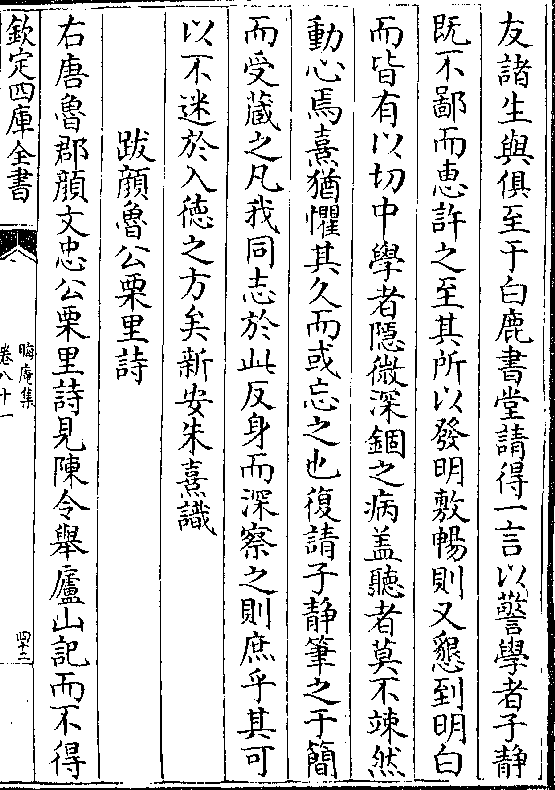 友諸生與俱至于白鹿書堂請得一言以警學者子静
既不鄙而恵許之至其所以發明敷暢則又懇到明白
而皆有以切中學者隱微深錮之病盖聽者莫不竦然
動心焉熹猶懼其久而或忘之也復請子静筆之于簡
而受藏之凡我同志於此反身而深察之則庶乎其可
以不迷於入德之方矣新安朱熹識
跋顔魯公栗里詩
右唐魯郡顔文忠公栗里詩見陳令舉廬山記而不得
欽定四庫全書
晦庵集
卷八十一
四十二